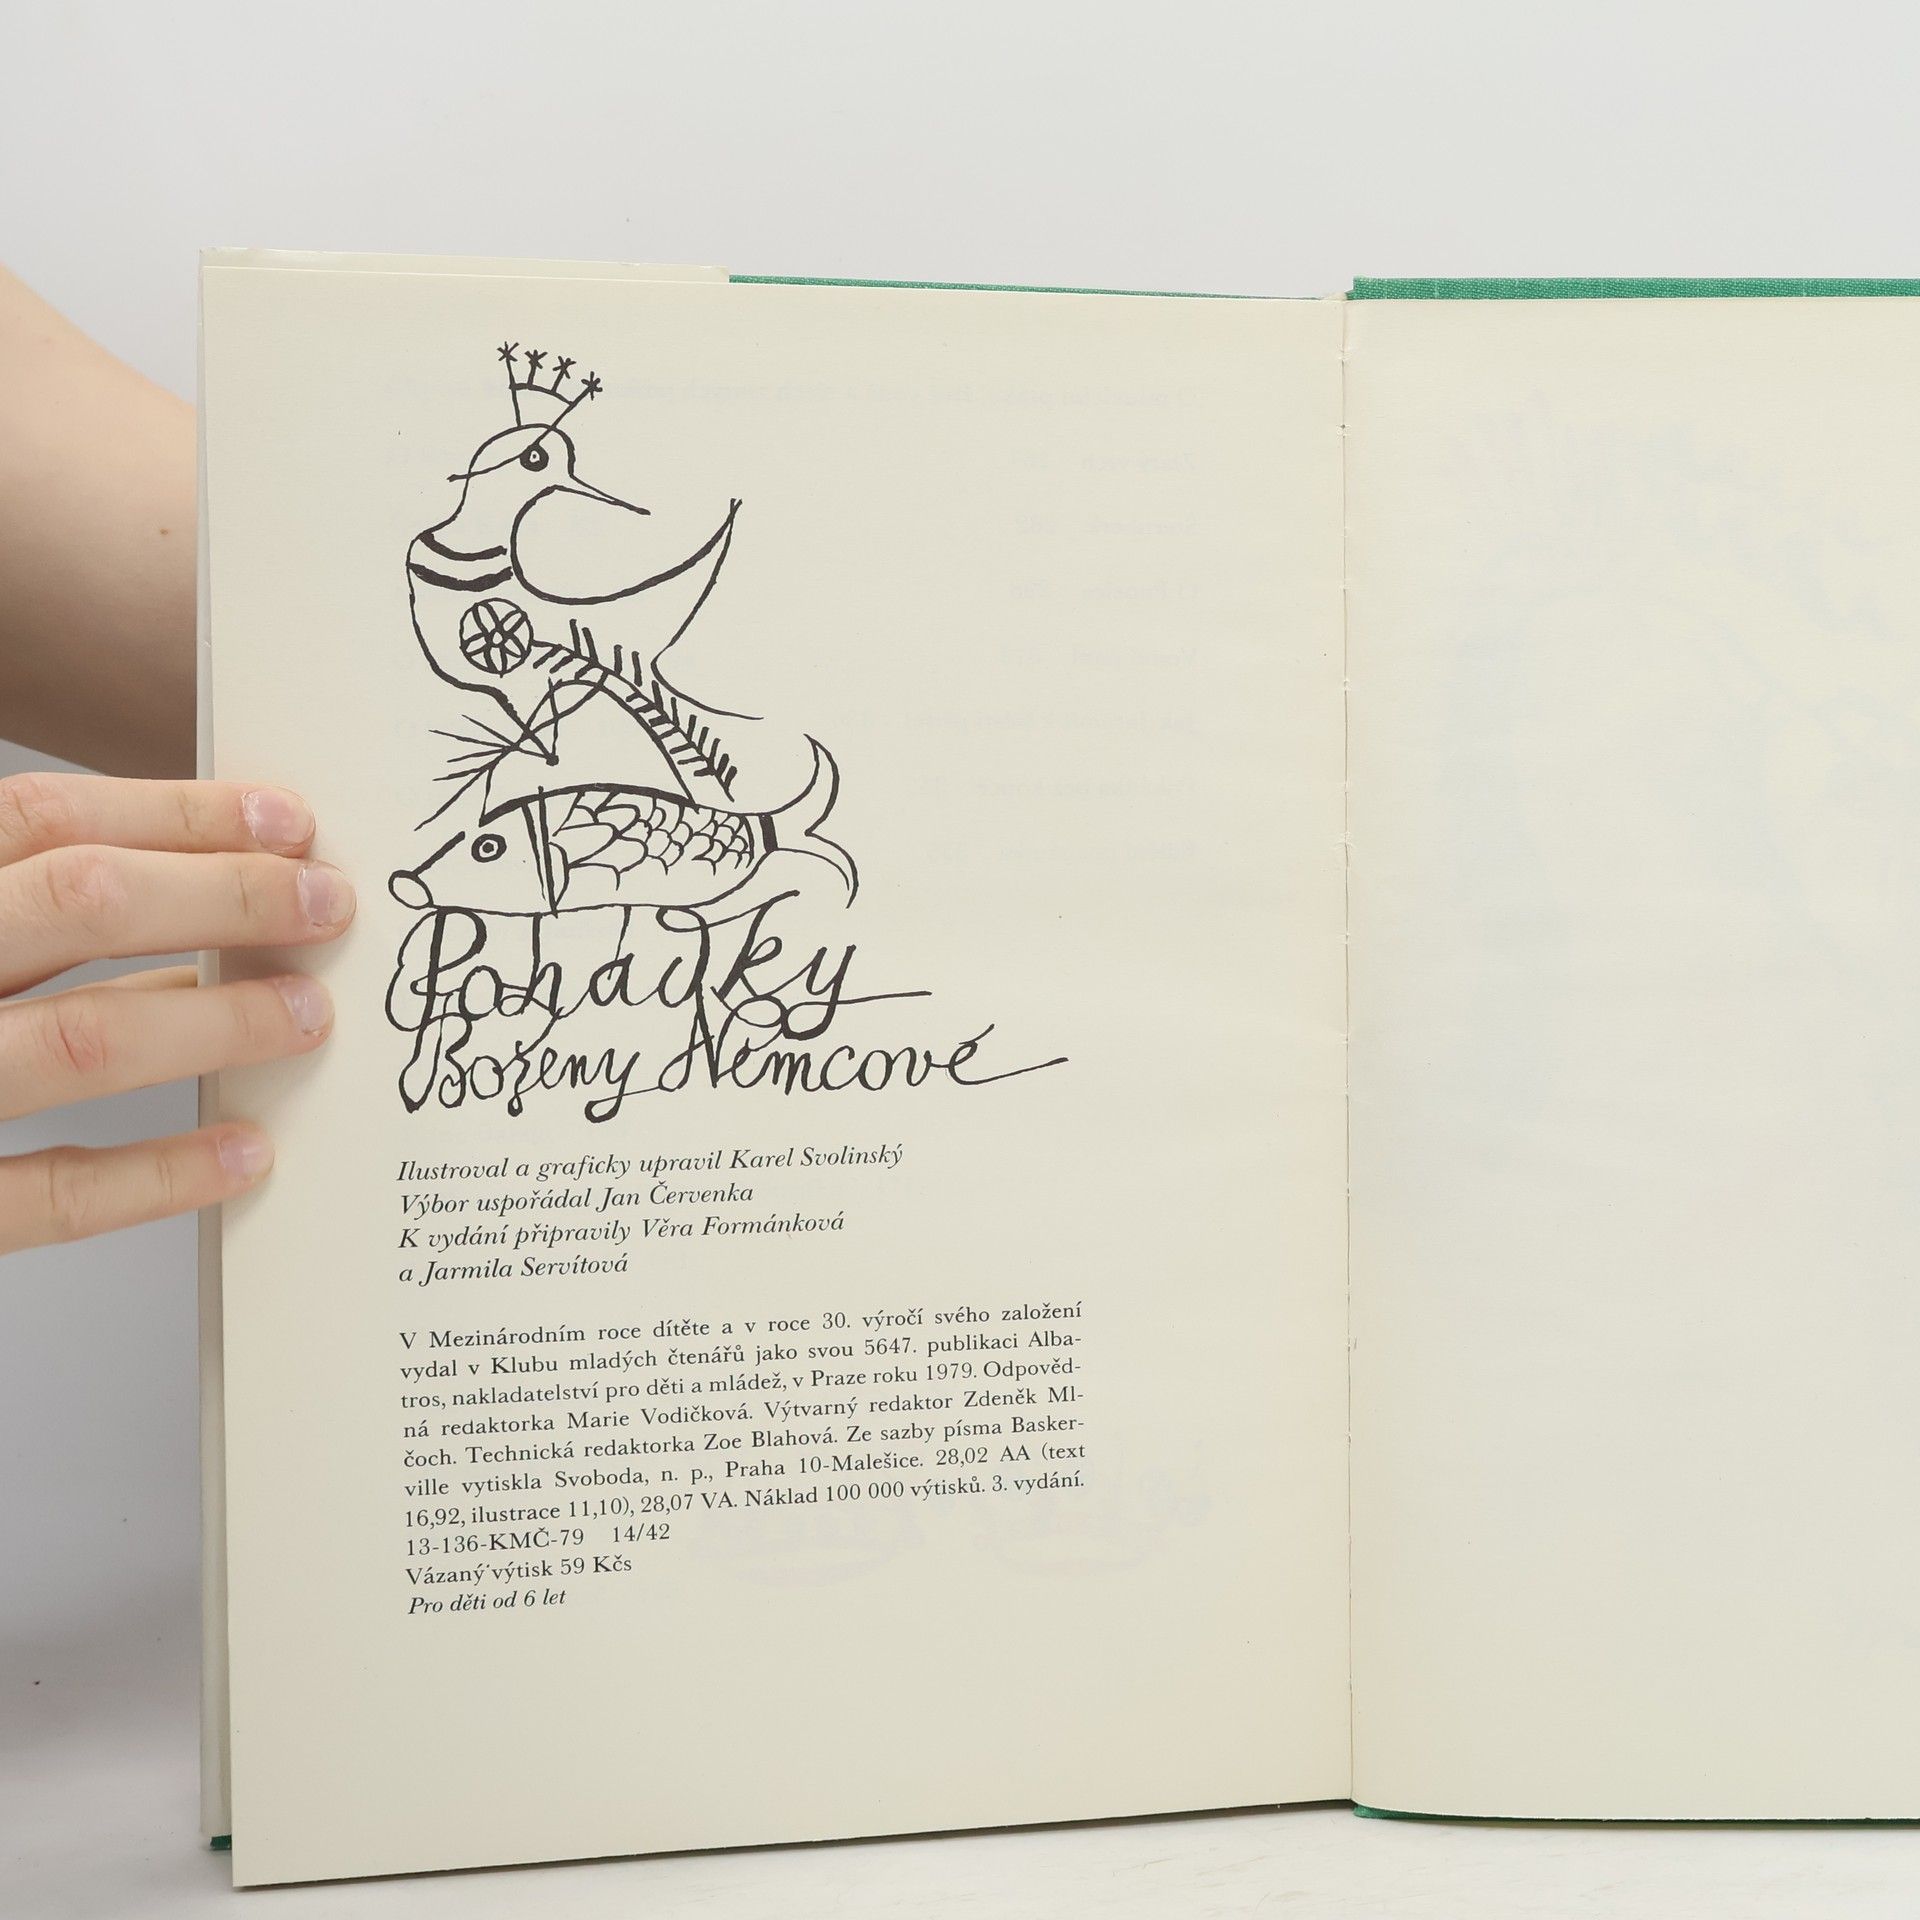 Pohádky
Boženy Němcové
Ilustroval a graficky upravil Karel Svolinský
Výbor uspořádal Jan Červenka
K vydání připravily Věra Formánková
a Jarmila Servítová
V Mezinárodním roce dítěte a v roce 30. výročí svého založení
vydal v Klubu mladých čtenářů jako svou 5647. publikaci Alba-
tros, nakladatelství pro děti a mládež, v Praze roku 1979. Odpověd-
ná redaktorka Marie Vodičková. Výtvarný redaktor Zdeněk Ml-
čoch. Technická redaktorka Zoe Blahová. Ze sazby písma Basker-
ville vytiskla Svoboda, n. p., Praha 10-Malešice. 28,02 AA (text
16,92, ilustrace 11,10), 28,07 VA. Náklad 100 000 výtisků. 3. vydání.
13-136-KMČ-79 14/42
Vázaný výtisk 59 Kčs
Pro děti od 6 let